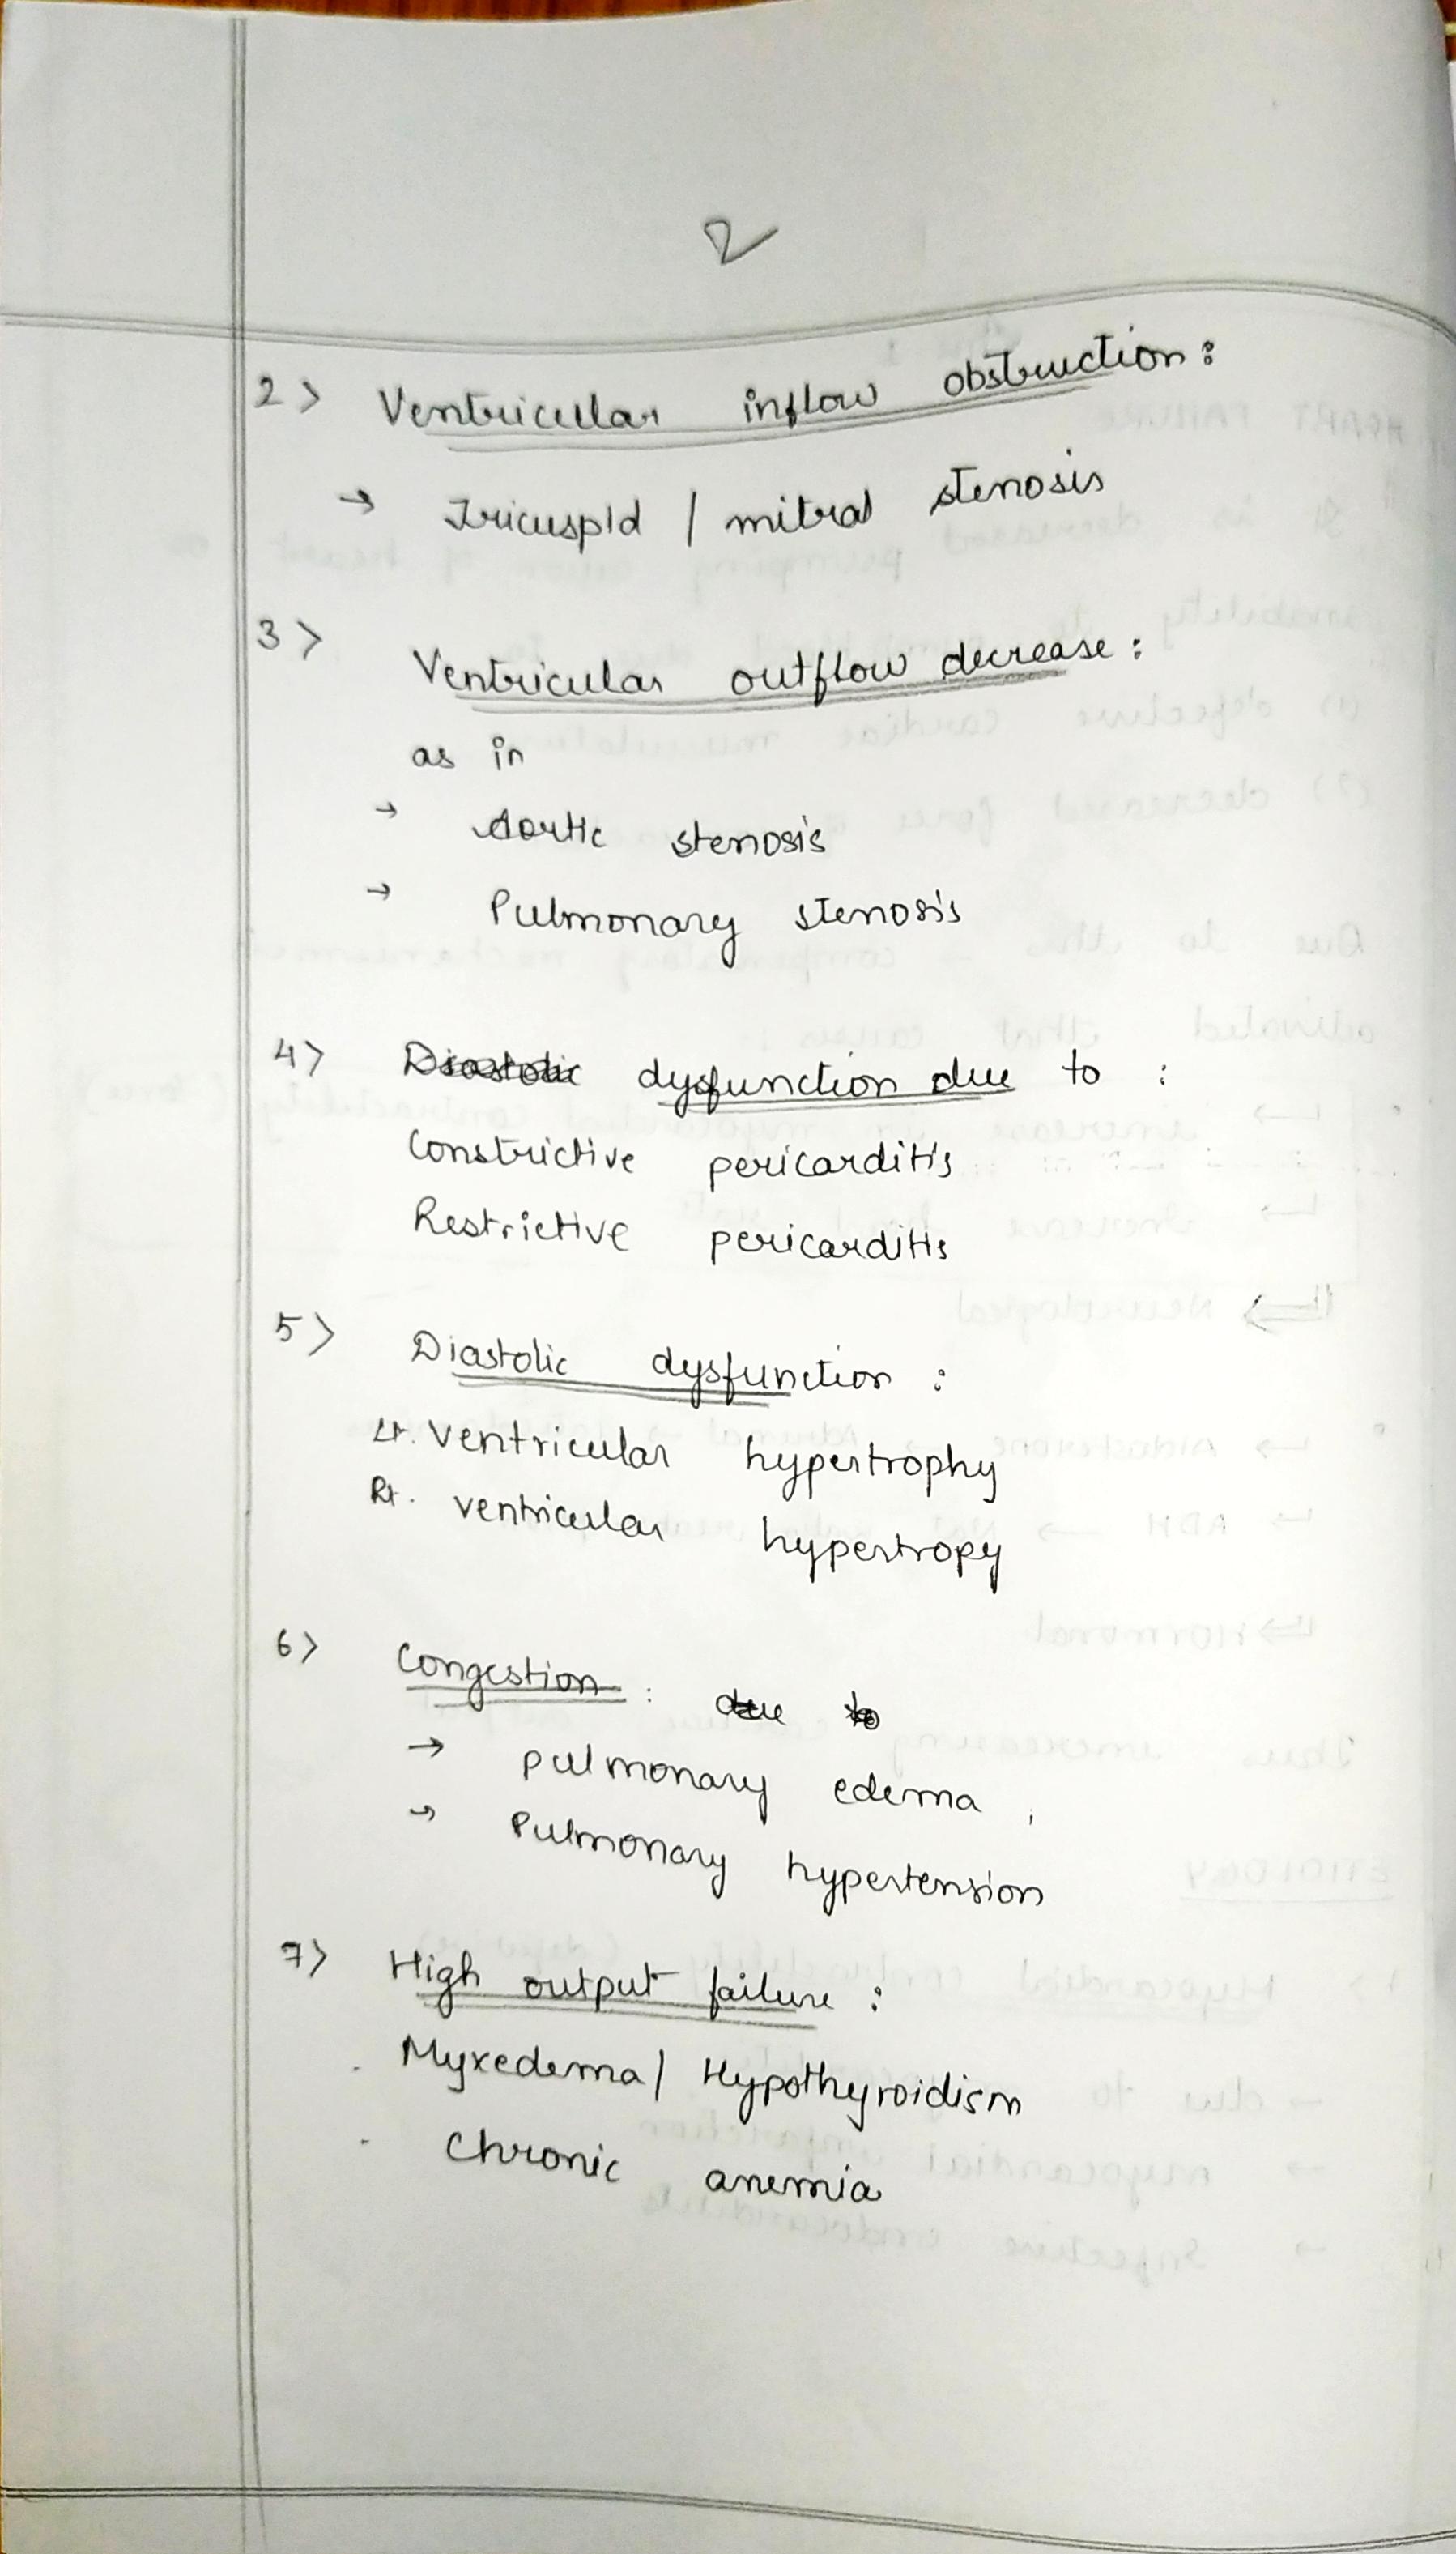 2
2> Ventricular inflow obstruction:
→ Tricuspid / mitral stenosis
3> Ventricular outflow decrease:
as in
→ Aortic stenosis
→ Pulmonary stenosis
4> Diastolic dysfunction due to :
Constrictive pericarditis
Restrictive pericarditis
5> Diastolic dysfunction :
Lt. ventricular hypertrophy
Rt. ventricular hypertropy
6> Congestion : due to
→ pulmonary edema,
→ Pulmonary hypertension
7> High output failure :
. Myxedema / Hypothyroidism
- Chronic anemia